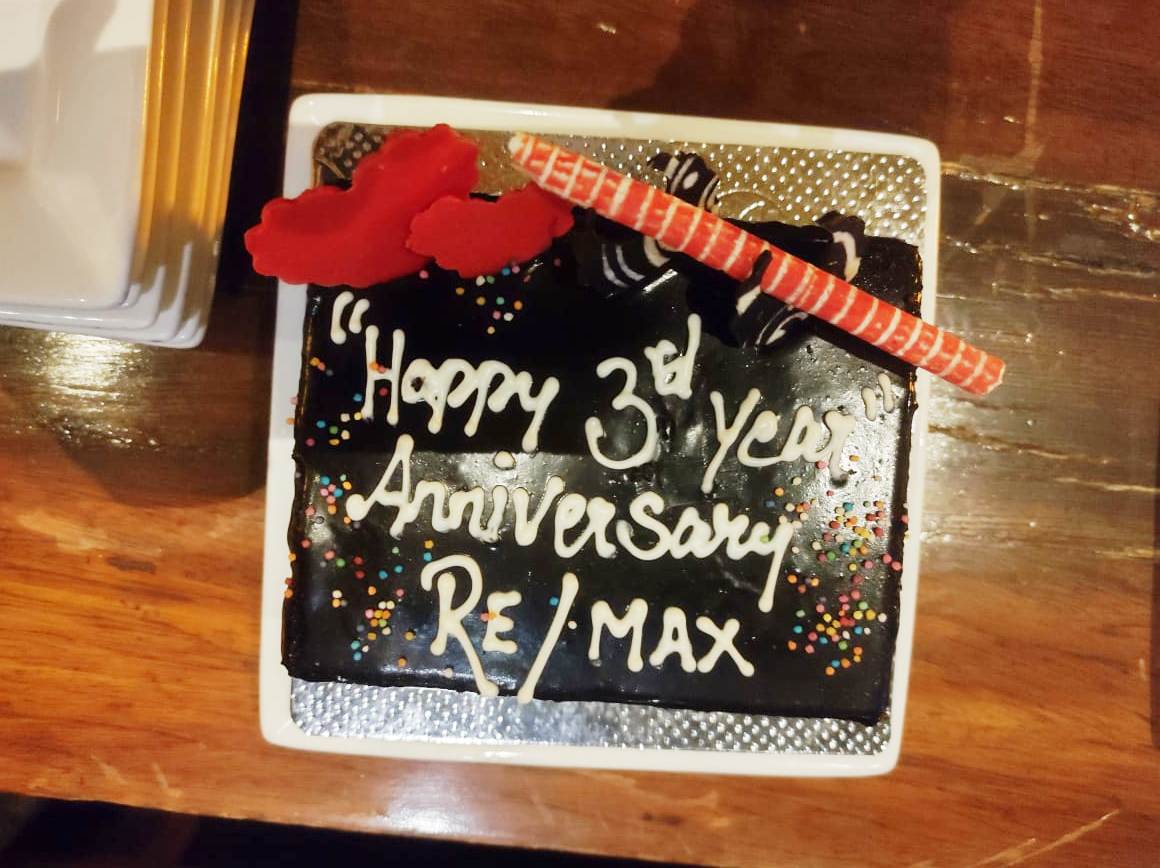 "Happy 3rd Year"
Anniversary
RE/MAX